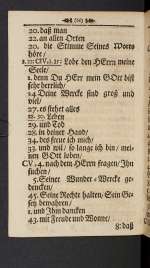 (36)
20. daß man
22. an allen Orten
20. die Stimme Seines Worts
höre/
1. 22. CIV. 1. 35: Lobe den HErrn meine
Seele/
1. denn Du HErr mein GOtt bist
sehr herrlich/
24. Deine Wercke sind groß und
viel/
27. es stehet alles
29. 30. Leben
29. und Tod
28. in deiner Hand/
34. deß freue ich mich/
33. und will/ so lange ich bin/ mei-
nen GOtt loben/
CV. 4. nach dem HErrn fragen/ Ihn
suchen/
5. Seiner Wunder-Wercke ge-
dencken/
45. Seine Rechte halten/ Sein Ge-
setz bewahren/
1. und Ihm dancken
43. mit Freude und Wonne/
8: daß